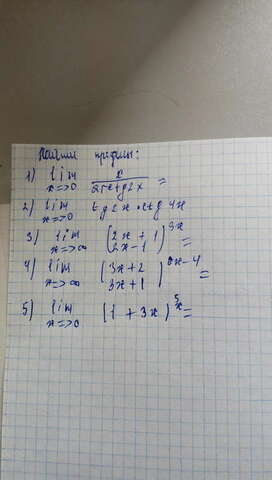 Найти пределы:
1) lim x->0 x / arctg2x =
2) lim x->0 tg2x·ctg4x
3) lim x->∞ (2x+1 / 2x-1)^3x =
4) lim x->∞ (3x+2 / 3x+1)^x-4 =
5) lim x->0 (1+3x)^5/x =